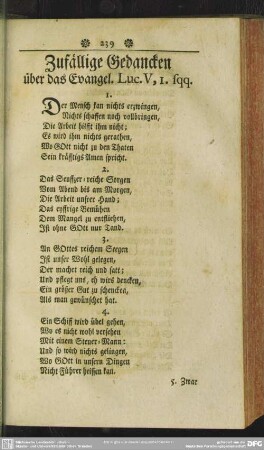 239
Zufällige Gedancken
über das Evangel. Luc. V, 1. sqq.
1.
Der Mensch kan nichts erzwängen,
Nichts schaffen noch vollbringen,
Die Arbeit hilfft ihm nicht;
Es wird ihm nichts gerathen,
Wo GOtt nicht zu den Thaten
Sein kräfftigs Amen spricht.
2.
Das Seuffzer-reiche Sorgen
Vom Abend bis am Morgen,
Die Arbeit unsrer Hand;
Das eyffrige Bemühen
Dem Mangel zu entfliehen,
Ist ohne GOtt nur Tand.
3.
An GOttes reichem Seegen
Ist unser Wohl gelegen,
Der machet reich und satt;
Und pflegt uns, eh wirs dencken,
Ein größer Gut zu schencken,
Als man gewünschet hat.
4.
Ein Schiff wird übel gehen,
Wo es nicht wohl versehen
Mit einem Steuer-Mann:
Und so wird nichts gelingen,
Wo GOtt in unsern Dingen
Nicht Führer heissen kan.
5. Zwar